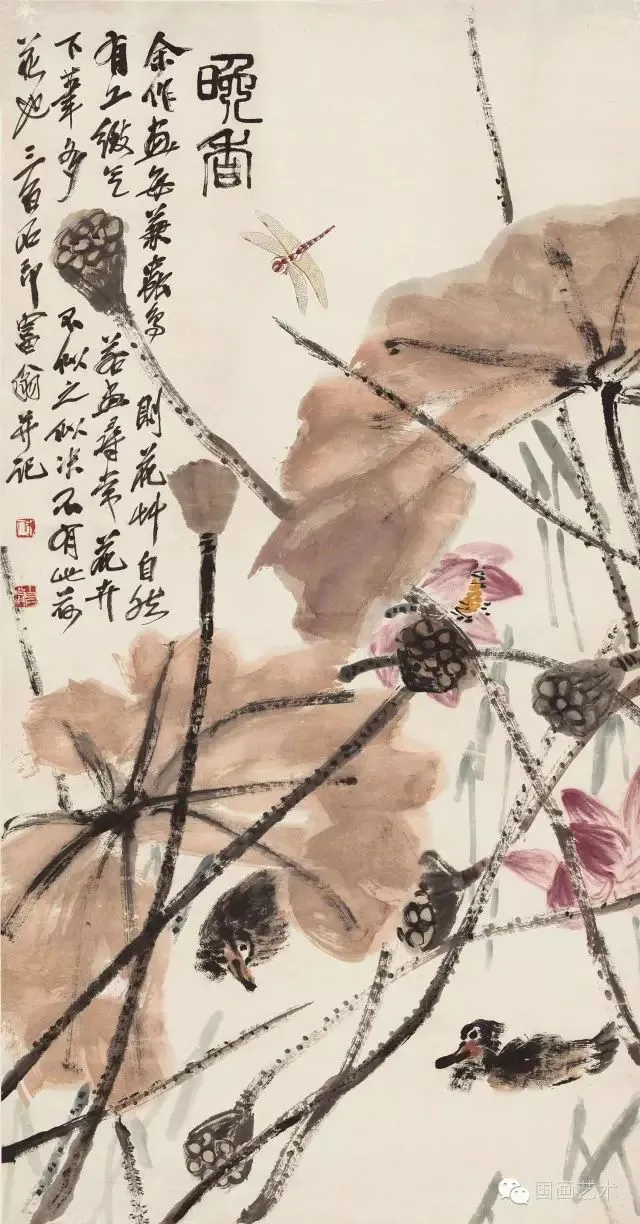 晚香
余作畫每兼蟲鳥則花艸自然
有工緻气若畫尋常花卉
下筆多不似之似决不有此荷
花也三百石印富翁并記
国画艺术